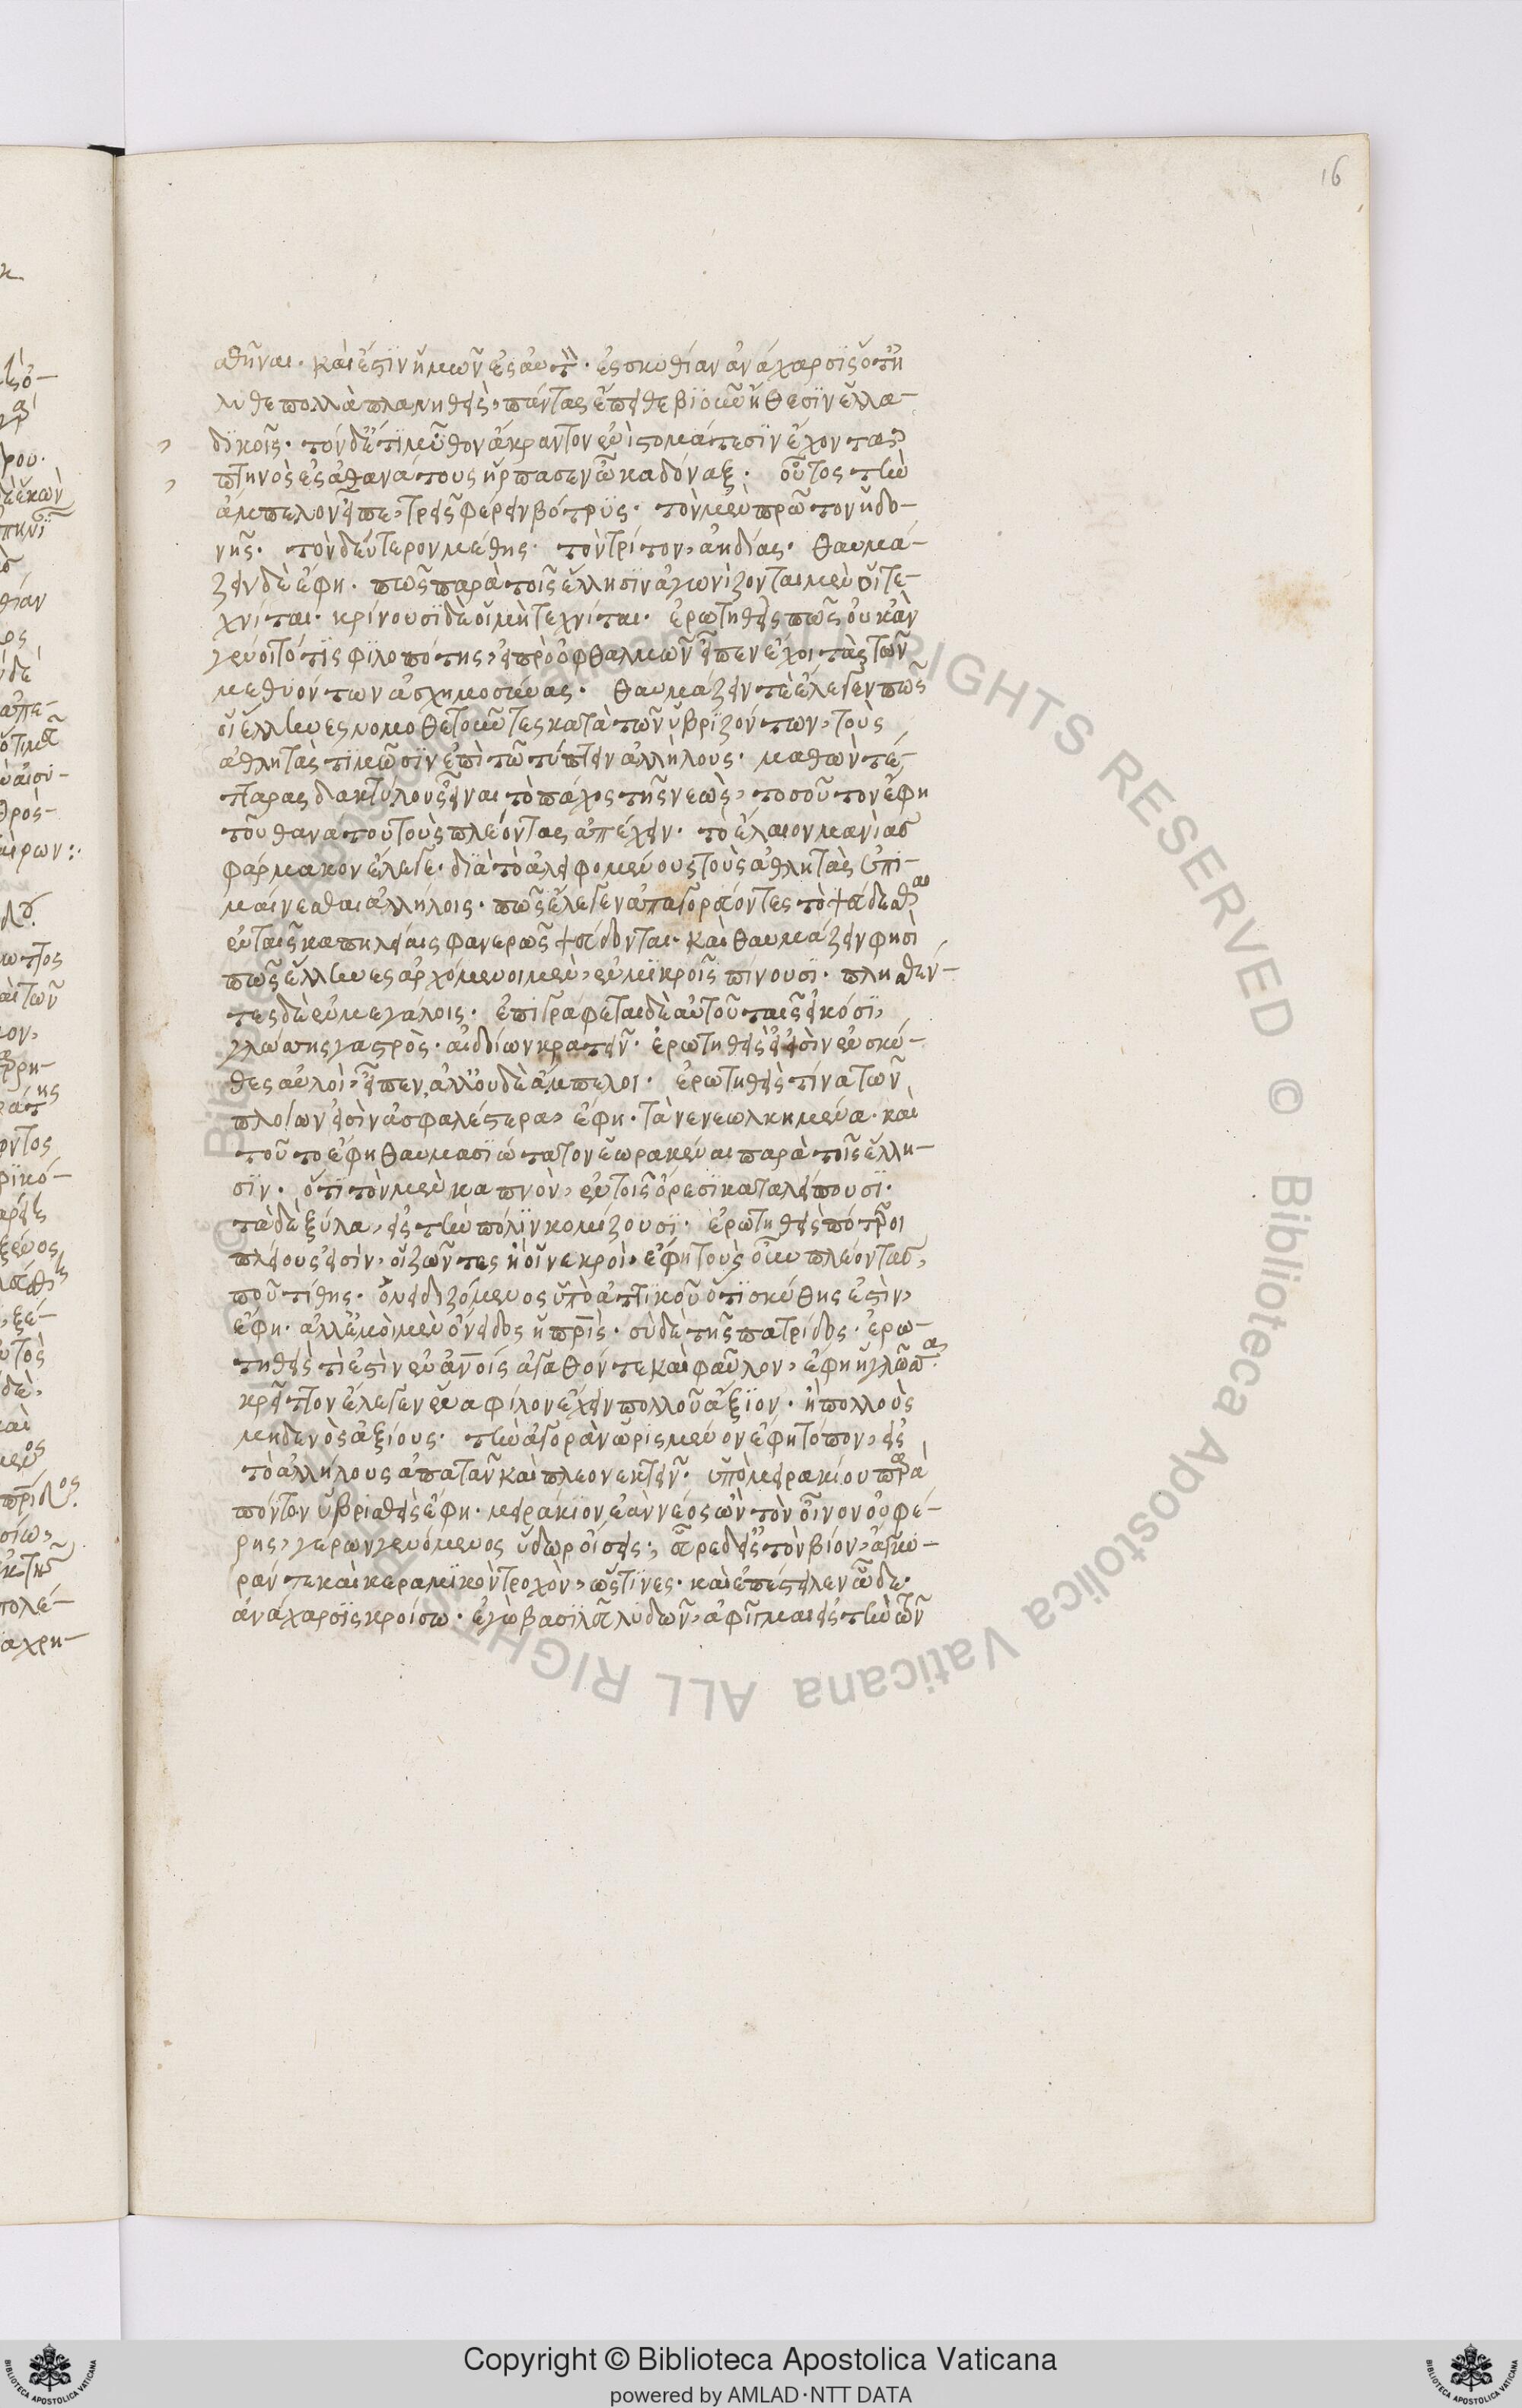 16
αθῆναι. καὶ ἔστιν ἡμῶν ἐς αυτ. ἐς σκυθίαν ἀνάχαρσις ὅτ ἤ
λυθε πολλὰ πλανηθεὶς, πάντας ἔπειθε βιοῦν ἤθεσιν ἑλλα-
δικοῖς. τὸν δ' ἔτι μῦθον ἄκραντον ἐνὶ στομάτεσιν ἔχοντα,
πτηνὸς ἐς ἀθανάτους ἥρπασεν ὦκα δόναξ. οὗτος τὴν
ἄμπελον εἶπε, τρεῖς φέρειν βότρυς. τὸν μὲν πρῶτον ἡδο-
νῆς. τὸν δεύτερον μέθης. τὸν τρίτον, ἀηδίας. θαυμά-
ζειν δὲ ἔφη. πῶς παρὰ τοῖς ἕλλησιν ἀγωνίζονται μὲν οἱ τε-
χνῖται. κρίνουσι δὲ οἱ μὴ τεχνῖται. ἐρωτηθεὶς πῶς οὐκ ἂν
γένοιτό τις φιλοπότης, εἰ πρὸ ὀφθαλμῶν εἶπεν ἔχοι τὰς τῶν
μεθυόντων ἀσχημοσύνας. θαυμάζειν τὲ ἔλεγεν πῶς
οἱ ἕλληνες νομοθετοῦντες κατὰ τῶν ὑβριζόντων, τοὺς
ἀθλητὰς τιμῶσιν ἐπὶ τῶ τύπτειν ἀλλήλους. μαθὼν τέ-
τταρας δακτύλους εἶναι τὸ πάχος τῆς νεὼς, τοσοῦτον ἔφη
τοῦ θανάτου τοὺς πλέοντας ἀπέχειν. τὸ ἔλαιον μανίας
φάρμακον ἔλεγε. διὰ τὸ ἀλειφομένους τοὺς ἀθλητὰς ἐπι-
μαίνεσθαι ἀλλήλοις. πῶς ἔλεγεν ἀπαγορεύοντες τὸ ψεύδεσθαι
ἐν ταῖς καπηλείαις φανερῶς ψεύδονται. καὶ θαυμάζειν φησὶ
πῶς ἕλληνες ἀρχόμενοι μὲν, ἐν μικροῖς πίνουσι. πλησθέν-
τες δὲ ἐν μεγάλοις. ἐπιγράφεται δὲ αὐτοῦ ταῖς εἰκόσι,
γλώσσης γαστρὸς. αἰδοίων κρατεῖν. ἐρωτηθεὶς εἰ εἰσὶν ἐν σκύ-
θες αὐλοὶ, εἶπεν, ἀλλ' οὐδὲ ἄμπελοι. ἐρωτηθεὶς τίνα τῶν
πλοίων εἰσὶν ἀσφαλέστερα, ἔφη. τὰ νενεωλκημένα. καὶ
τοῦτο ἔφη θαυμασιώτατον ἑωρακέναι παρὰ τοῖς ἕλλη-
σιν. ὅτι τὸν μὲν καπνὸν, ἐν τοῖς ὄρεσι καταλείπουσι.
τὰ δὲ ξύλα, εἰς τὴν πόλιν κομίζουσι. ἐρωτηθεὶς πότεροι
πλείους εἰσὶν, οἱ ζῶντες ἢ οἱ νεκροὶ, ἔφη τοὺς οὖν πλέοντας,
ποῦ τίθης. ὀνειδιζόμενος ὑπὸ ἀττικοῦ ὅτι σκύθης ἐστὶν,
ἔφη. ἀλλ' ἐμοὶ μὲν ὄνειδος ἡ πρὶς. σὺ δὲ τῆς πατρίδος. ἐρω-
τηθεὶς τί ἐστὶν ἐν ἀνοις ἀγαθόν τε καὶ φαῦλον, ἔφη ἡ γλῶσσα.
κρεῖττον ἔλεγεν ἕνα φίλον ἔχειν πολλοῦ ἄξιον. ἢ πολλοὺς
μηδενὸς ἀξίους. τὴν ἀγορὰν ὡρισμένον ἔφη τόπον, εἰς
τὸ ἀλλήλους ἀπατᾶν καὶ πλεονεκτεῖν. ὑπὸ μειρακίου παρὰ
πότον ὑβρισθεὶς ἔφη. μειράκιον, ἐὰν νέος ὢν τὸν οἶνον οὐ φέ-
ρης, γέρων γενόμενος ὕδωρ οἴσεις. εὗρε δ' εἰς τὸν βίον, ἄγκυ-
ράν τε καὶ κεραμικὸν τροχὸν, ὥς τινες. καὶ ἐπέστειλεν ὧδε.
ἀνάχαρσις κροίσω. ἐγὼ βασιλεῦ λυδῶν, ἀφῖγμαι εἰς τὴν τῶν
Copyright © Biblioteca Apostolica Vaticana
powered by AMLAD·NTT DATA
© Biblioteca Apostolica Vaticana ALL RIGHTS RESERVED